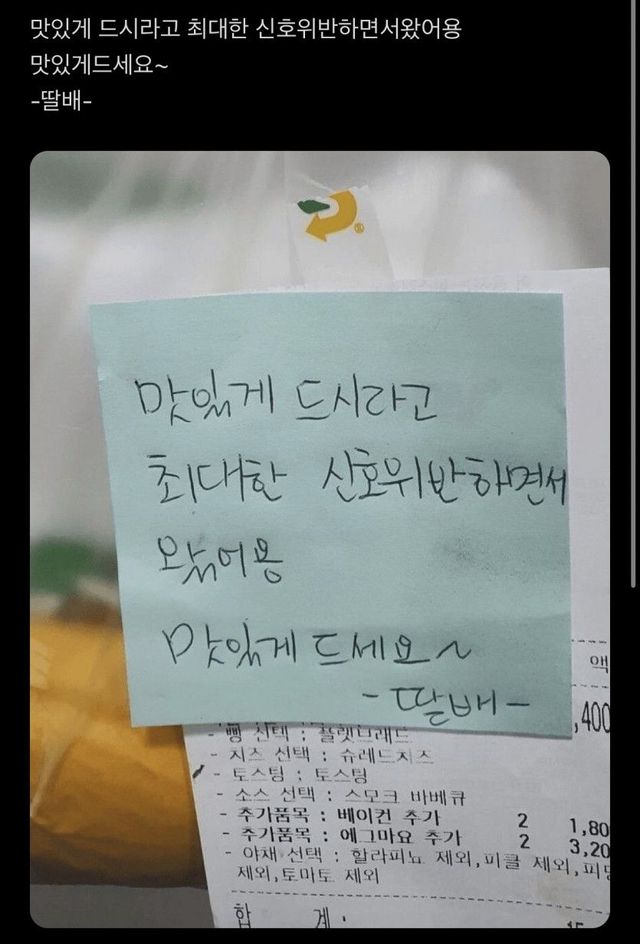 맛있게 드시라고 최대한 신호위반하면서왔어용
맛있게드세요~
-딸배-
맛있게 드시라고
최대한 신호위반하면서
왔어용
맛있게 드세요~
-딸배-
액
,400
- 빵 선택 : 플랫브레드
- 치즈 선택 : 슈레드치즈
- 토스팅 : 토스팅
- 소스 선택 : 스모크 바베큐
- 추가품목 : 베이컨 추가 2 1,80
- 추가품목 : 에그마요 추가 2 3,20
- 야채 선택 : 할라피뇨 제외,피클 제외,피망
제외,토마토 제외
합 계